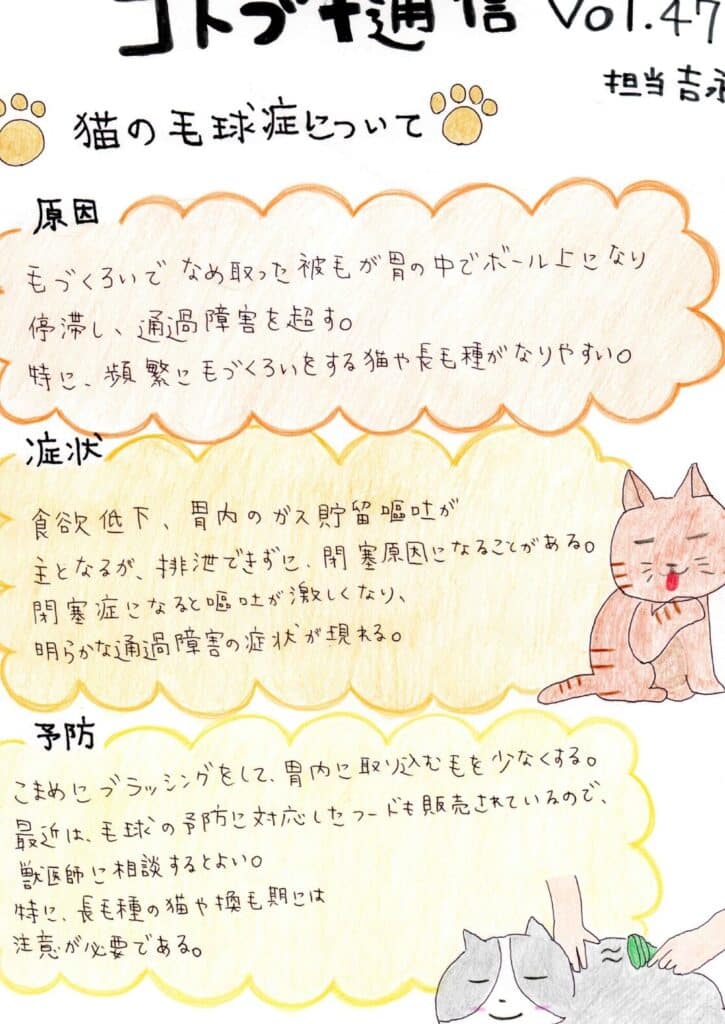 コトブキ通信 Vol.47
担当 吉永
猫の毛球症について
原因
毛づくろいでなめ取った被毛が胃の中でボール上になり
停滞し、通過障害を超す。
特に、頻繁に毛づくろいをする猫や長毛種がなりやすい。
症状
食欲低下、胃内のガス貯留嘔吐が
主となるが、排泄できずに、閉塞原因になることがある。
閉塞症になると嘔吐が激しくなり、
明らかな通過障害の症状が現れる。
予防
こまめにブラッシングをして、胃内に取り込む毛を少なくする。
最近は、毛球の予防に対応したフードも販売されているので、
獣医師に相談するとよい。
特に、長毛種の猫や換毛期には
注意が必要である。